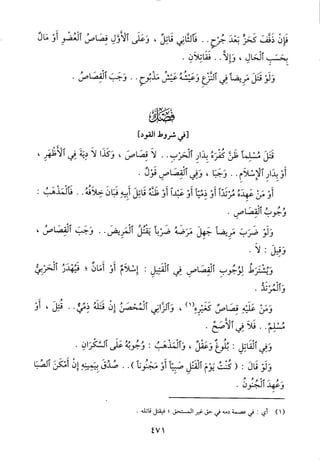 فَإِنْ ذَفَّفَ كَحَزٍّ بَعْدَ جُرْحٍ.. فَالثَّانِي قَاتِلٌ ، وَعَلَى الأَوَّلِ قِصَاصُ الْعُضْوِ أَوْ مَالٌ
بِحَسَبِ الْحَالِ ، وَإِلاَّ.. فَقَاتِلاَنِ .
وَلَوْ قَتَلَ مَرِيضاً فِي النَّزْعِ وَعَيْشُهُ عَيْشُ مَذْبُوحٍ.. وَجَبَ الْقِصَاصُ .
فَصْلٌ
[في شروط القود]
قَتَلَ مُسْلِماً ظَنَّ كُفْرَهُ بِدَارِ الْحَرْبِ.. لاَ قِصَاصَ ، وَكَذَا لاَ دِيَةَ فِي الأَظْهَرِ ،
أَوْ بِدَارِ الإِسْلاَمِ.. وَجَبَا ، وَفِي الْقِصَاصِ قَوْلٌ .
أَوْ مَنْ عَهِدَهُ مُرْتَدّاً أَوْ ذِمِّيّاً أَوْ عَبْداً أَوْ ظَنَّهُ قَاتِلَ أَبِيهِ فَبَانَ خِلاَفُهُ.. فَالْمَذْهَبُ :
وُجُوبُ الْقِصَاصِ .
وَلَوْ ضَرَبَ مَرِيضاً جَهِلَ مَرَضَهُ ضَرْباً يَقْتُلُ الْمَرِيضَ.. وَجَبَ الْقِصَاصُ ،
وَقِيلَ : لاَ .
وَيُشْتَرَطُ لِوُجُوبِ الْقِصَاصِ فِي الْقَتِيلِ : إِسْلاَمٌ أَوْ أَمَانٌ ؛ فَيُهْدَرُ الْحَرْبِيُّ
وَالْمُرْتَدُّ .
وَمَنْ عَلَيْهِ قِصَاصٌ كَغَيْرِهِ(١) ، وَالزَّانِي الْمُحْصَنُ إِنْ قَتَلَهُ ذِمِّيٌّ.. قُتِلَ ، أَوْ
مُسْلِمٌ.. فَلاَ فِي الأَصَحِّ .
وَفِي الْقَاتِلِ : بُلُوغٌ وَعَقْلٌ ، وَالْمَذْهَبُ : وُجُوبُهُ عَلَى السَّكْرَانِ .
وَلَوْ قَالَ : ( كُنْتُ يَوْمَ الْقَتْلِ صَبِيّاً أَوْ مَجْنُوناً ).. صُدِّقَ بِيَمِينِهِ إِنْ أَمْكَنَ الصِّبَا
وَعُهِدَ الْجُنُونُ .
(١) أي : في عصمة دمه في حق غير المستحق ، فيقتل قاتله .
٤٧١